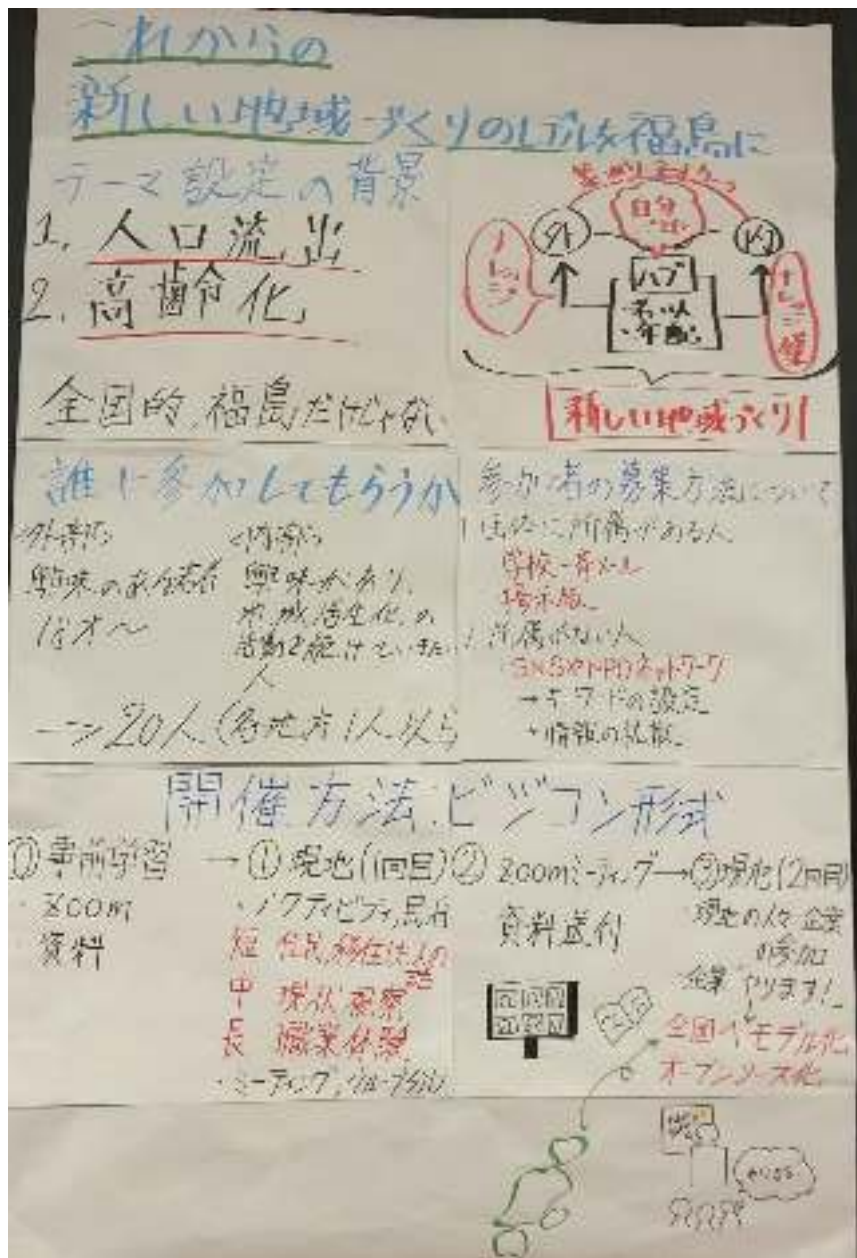 これからの
新しい地域づくりのモデルを福島に
テーマ設定の背景
1. 人口流出
2. 高齢化
全国的、福島だけじゃない
外
自分
内
ハブ
・若い人
・年配
ナレッジ
新しい地域づくり
誰に参加してもらうか
<外部>
興味のある若者
18才〜
<内部>
興味があり、
地域活性化の
活動を続けていきたい
人
→20人(各地方1人以上
参加者の募集方法について
団体に所属がある人
学校一斉メール
掲示版
所属がない人
SNSやNPOネットワーク
→キーワードの設定
→情報の拡散
開催方法:ビジコン形式
⓪事前学習
・zoom
・資料
→①現地(1回目)
・アクティビティ,民泊
短 住民,移住法人の話
中 現状視察
長 職業体験
・ミーティング,グループ分け
②zoomミーティング
資料送付
→③現地(2回目)
・現地の人々,企業
の参加
企業「やります!」
全国へモデル化
オープンソース化